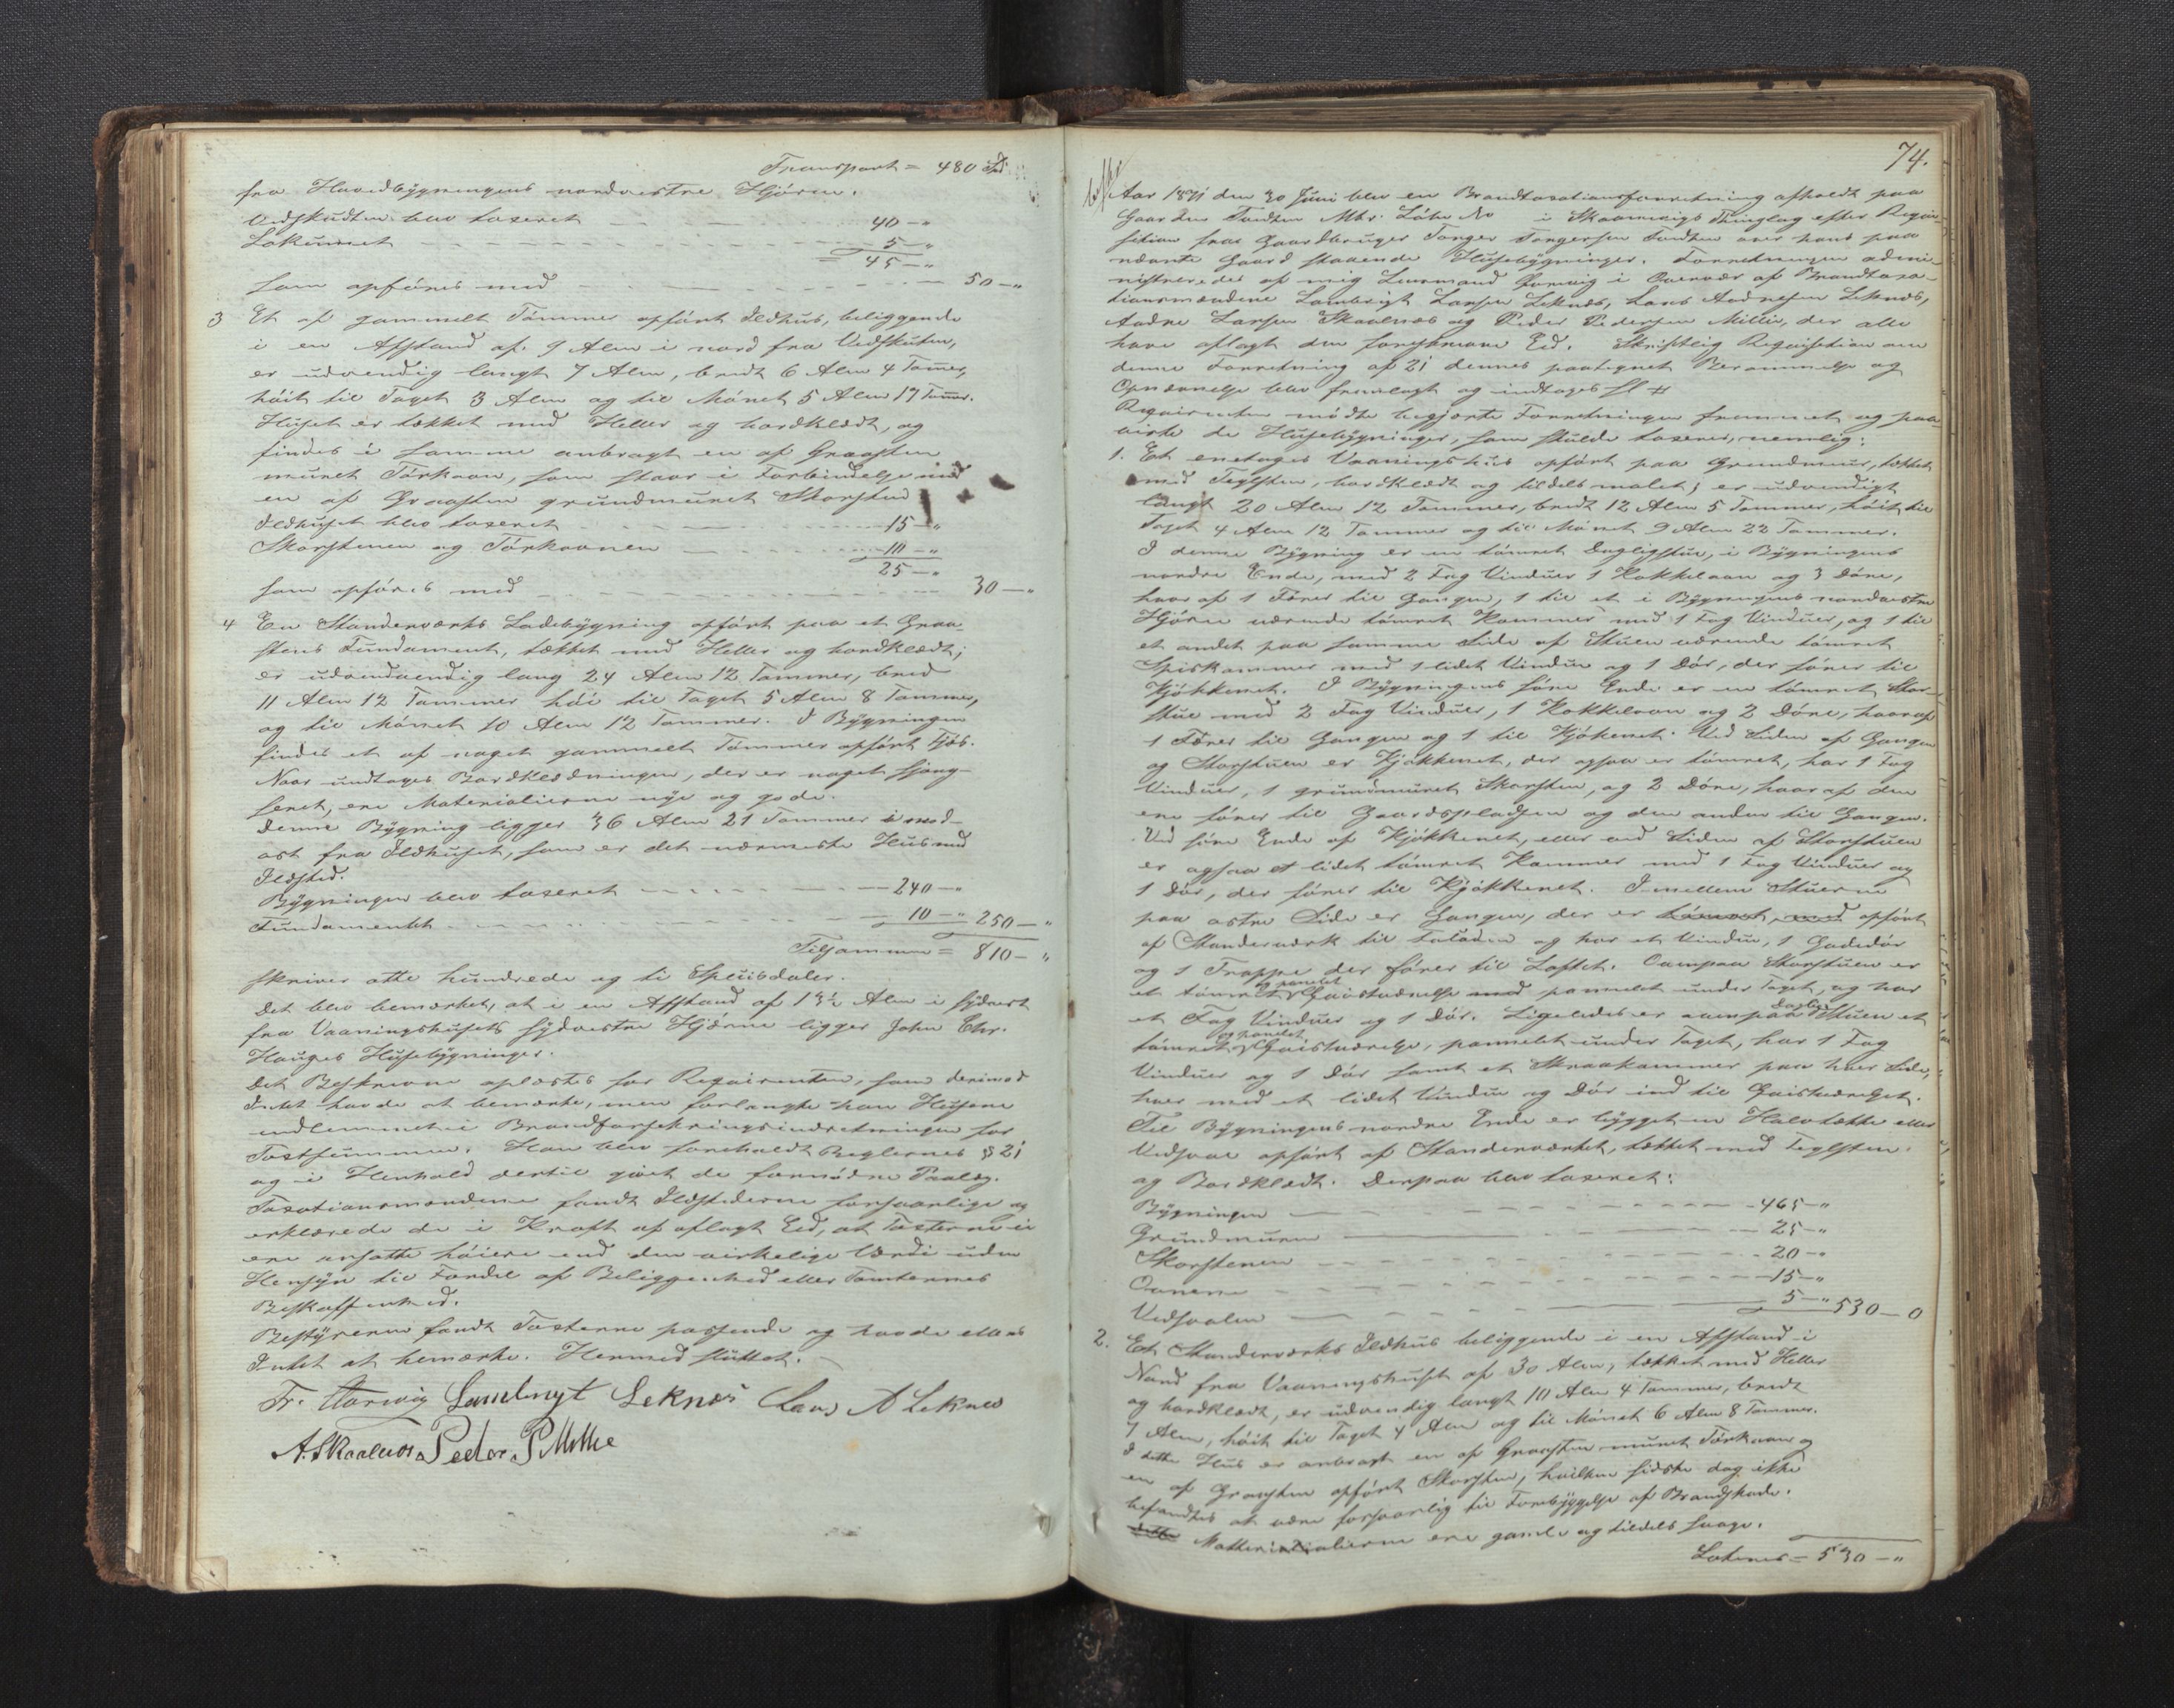 Transport = 480 Spd.
fra Hovedbygningens nordvestre Hjørne.
Vedskudten blev taxeret 40 — "
Lokummet 5 — "
= 45 — "
som opføres med 50 — "
3 Et af gammelt Tømmer opført Ildhus, beliggende
i en Afstand af 9 Alen i nord fra Vedskuten,
er udvendig langt 7 Alen, bredt 6 Alen 4 Tommer,
høit til Taget 3 Alen og til Mønet 5 Alen 17 Tommer.
Huset er tækket med Heller og bordklædt, og
findes i samme anbragt en af Graasten
muret Tørkovn, som staar i Forbindelse med
en af Graasten grundmuret Skorsten
Ildhuset blev taxeret 15 — "
Skorstenen og Tørkovnen 10 — "
25 — "
som opføres med 30 — "
4 En Standerværks Ladebygning opført paa et Graa-
stens Fundament, tækket med Heller og bordklædt;
er udvendvendig lang 24 Alen 12 Tommer, bred
11 Alen 12 Tommer høi til Taget 5 Alen 8 Tommer,
og til Mønet 10 Alen 12 Tommer. I Bygningen
findes et af noget gammelt Tømmer opført Fjøs.
Naar undtages Bordklædningen, der er noget
ere Materialierne nye og gode.
Denne Bygning ligger 36 Alen 21 Tommer i nord-
ost fra Ildhuset, som er det nærmeste Hus med
Ildsted.
Bygningen blev taxeret 240 — "
Fundamentet 10 — " 250 — "
Tilsammen = 810 — "
skriver otte hundrede og ti Speciesdaler.
Det blev bemærket, at i en Afstand af 13½ Alen i sydvest
fra Vaaningshusets sydvestre Hjørne ligger John Chr.
Hauges Husebygninger.
Det Beskrevne oplæstes for Reqvirenten, som derimod
Intet havde at bemærke, men forlangte han Husene
indlemmet i Brandforsikringsindretningen for
Taxtsummen. Han blev foreholdt Reglernes § 21
og i Henhold dertil givet de fornødne Paalæg.
Taxationsmændene fandt Ildstederne forsvarlige og
erklærede de i Kraft af aflagt Eed, at Taxterne ei
ere ansatte høiere end den virkelige Værdi uden
Hensyn til Fordel af Beliggenhed eller Tomternes
Beskaffenhed.
Bestyreren fandt Taxterne passende og havde ellers
Intet at bemærke. Hermed sluttet.
Fr. Lambrigt Leknæs Lars A Leknes
A. Skaalnes Peder P Mille
74.
Aar 1871 den 30 Juni blev en Brandtaxationsforretning afholdt paa
Gaarden Matr. Løbe No i Thinglag efter Reqvi-
sition fra Gaardbruger Torger Torgersen over hans paa
nævnte Gaard staaende Husebygninger. Forretningen admi-
nistreredes af mig Lensmand i Overvær af Brandtaxa-
tionsmændene Lambrigt Larsen Leknæs, Lars Andresen Leknæs,
Andre Larsen Skaalnæs og Peder Pedersen Mille, der alle
have aflagt den foreskrevne Eed. Skriftlig Reqvisition om
denne Forretning af 21 dennes paategnet Berammelse og
Opnævnelse blev fremlagt og indtages
Reqvirenten mødte begjærte Forretningen fremmet og paa
viste de Husebygninger, som skulde taxeres, nemlig:
1. Et enetages Vaaningshus opført paa Grundmuur, tækket
med Teglsten, bordklædt og tildels malet; er udvendigt
langt 20 Alen 12 Tommer, bredt 12 Alen 5 Tommer, høit til
Taget 4 Alen 12 Tommer og til Mønet 9 Alen 22 Tommer.
I denne Bygning er en tømret Dagligstue, i Bygningens
nordre Ende, med 2 Fag Vinduer 1 Kakkelovn og 3 Døre,
hvoraf 1 fører til Gangen, 1 til et i Bygningens nordvestre
Hjørne værende tømret Kammer med 1 Fag Vinduer, og 1 til
et andet paa samme Side af Stuen værende tømret
Spiskammer med 1 lidet Vindue og 1 Dør, der fører til
Kjøkkenet. I Bygningens søre Ende er en tømret Stor-
stue med 2 Fag Vinduer, 1 Kakkelovn og 2 Døre, hvoraf
1 fører til Gangen og 1 til Kjøkenet. Ved Siden af Gangen
og Storstuen er Kjøkkenet, der ogsaa er tømret, har 1 Fag
Vinduer, 1 grundmuret Skorsten, og 2 Døre, hvoraf den
ene fører til Gaardspladsen og den anden til Gangen.
Ved søre Ende af Kjøkkenet, eller ved Siden af Storstuen
er ogsaa et lidet tømret Kammer med 1 Fag Vinduer og
1 Dør, der fører til Kjøkkenet. Imellem Stuerne
paa østre Side er Gangen, der er tømret, med opført
af Standerværk til Faladen og har et Vindue, 1 Gadedør
og 1 Trappe der fører til Loftet. Ovenpaa Storstuen er
et tømret og panelet Qvistværelse med pannelet under Taget, og har
et Fag Vinduer og 1 Dør. Ligeledes er ovenpaa Daglig Stuen et
tømret og panelet Qvistværelse, pannelet under Taget, har 1 Fag
Vinduer og 1 Dør samt et Skraakammer paa hver Side,
hver med et lidet Vindue og Dør ind til Qvistværelset.
Til Bygningens nordre Ende er bygget en Halvtække eller
Vedsval opført af Standerværket, tækket med Teglsten
og Bordklædt. Derpaa blev taxeret:
Bygningen 465 — "
Grundmuren 25 — "
Skorstenen 20 — "
Ovnene 15 — "
Vedsvalen 5 — " 530 — 0
2. Et Standerværks Ildhus beliggende i en Afstand i
Nord fra Vaaningshuset af 30 Alen, tækket med Heller
og bordklædt, er udvendig langt 10 Alen 4 Tommer, bredt
7 Alen, høit til Taget 4 Alen og til Mønet 6 Alen 8 Tommer.
I dette Hus er anbragt en af Graasten muret Tørkovn og
en af Graasten opført Skorsten, hvilken sidste dog ikke
befandtes at være forsvarlig til Forebyggelse af Brandskade.
Matterialierne ere gamle og tildels svage.
Lateres = 530 — "